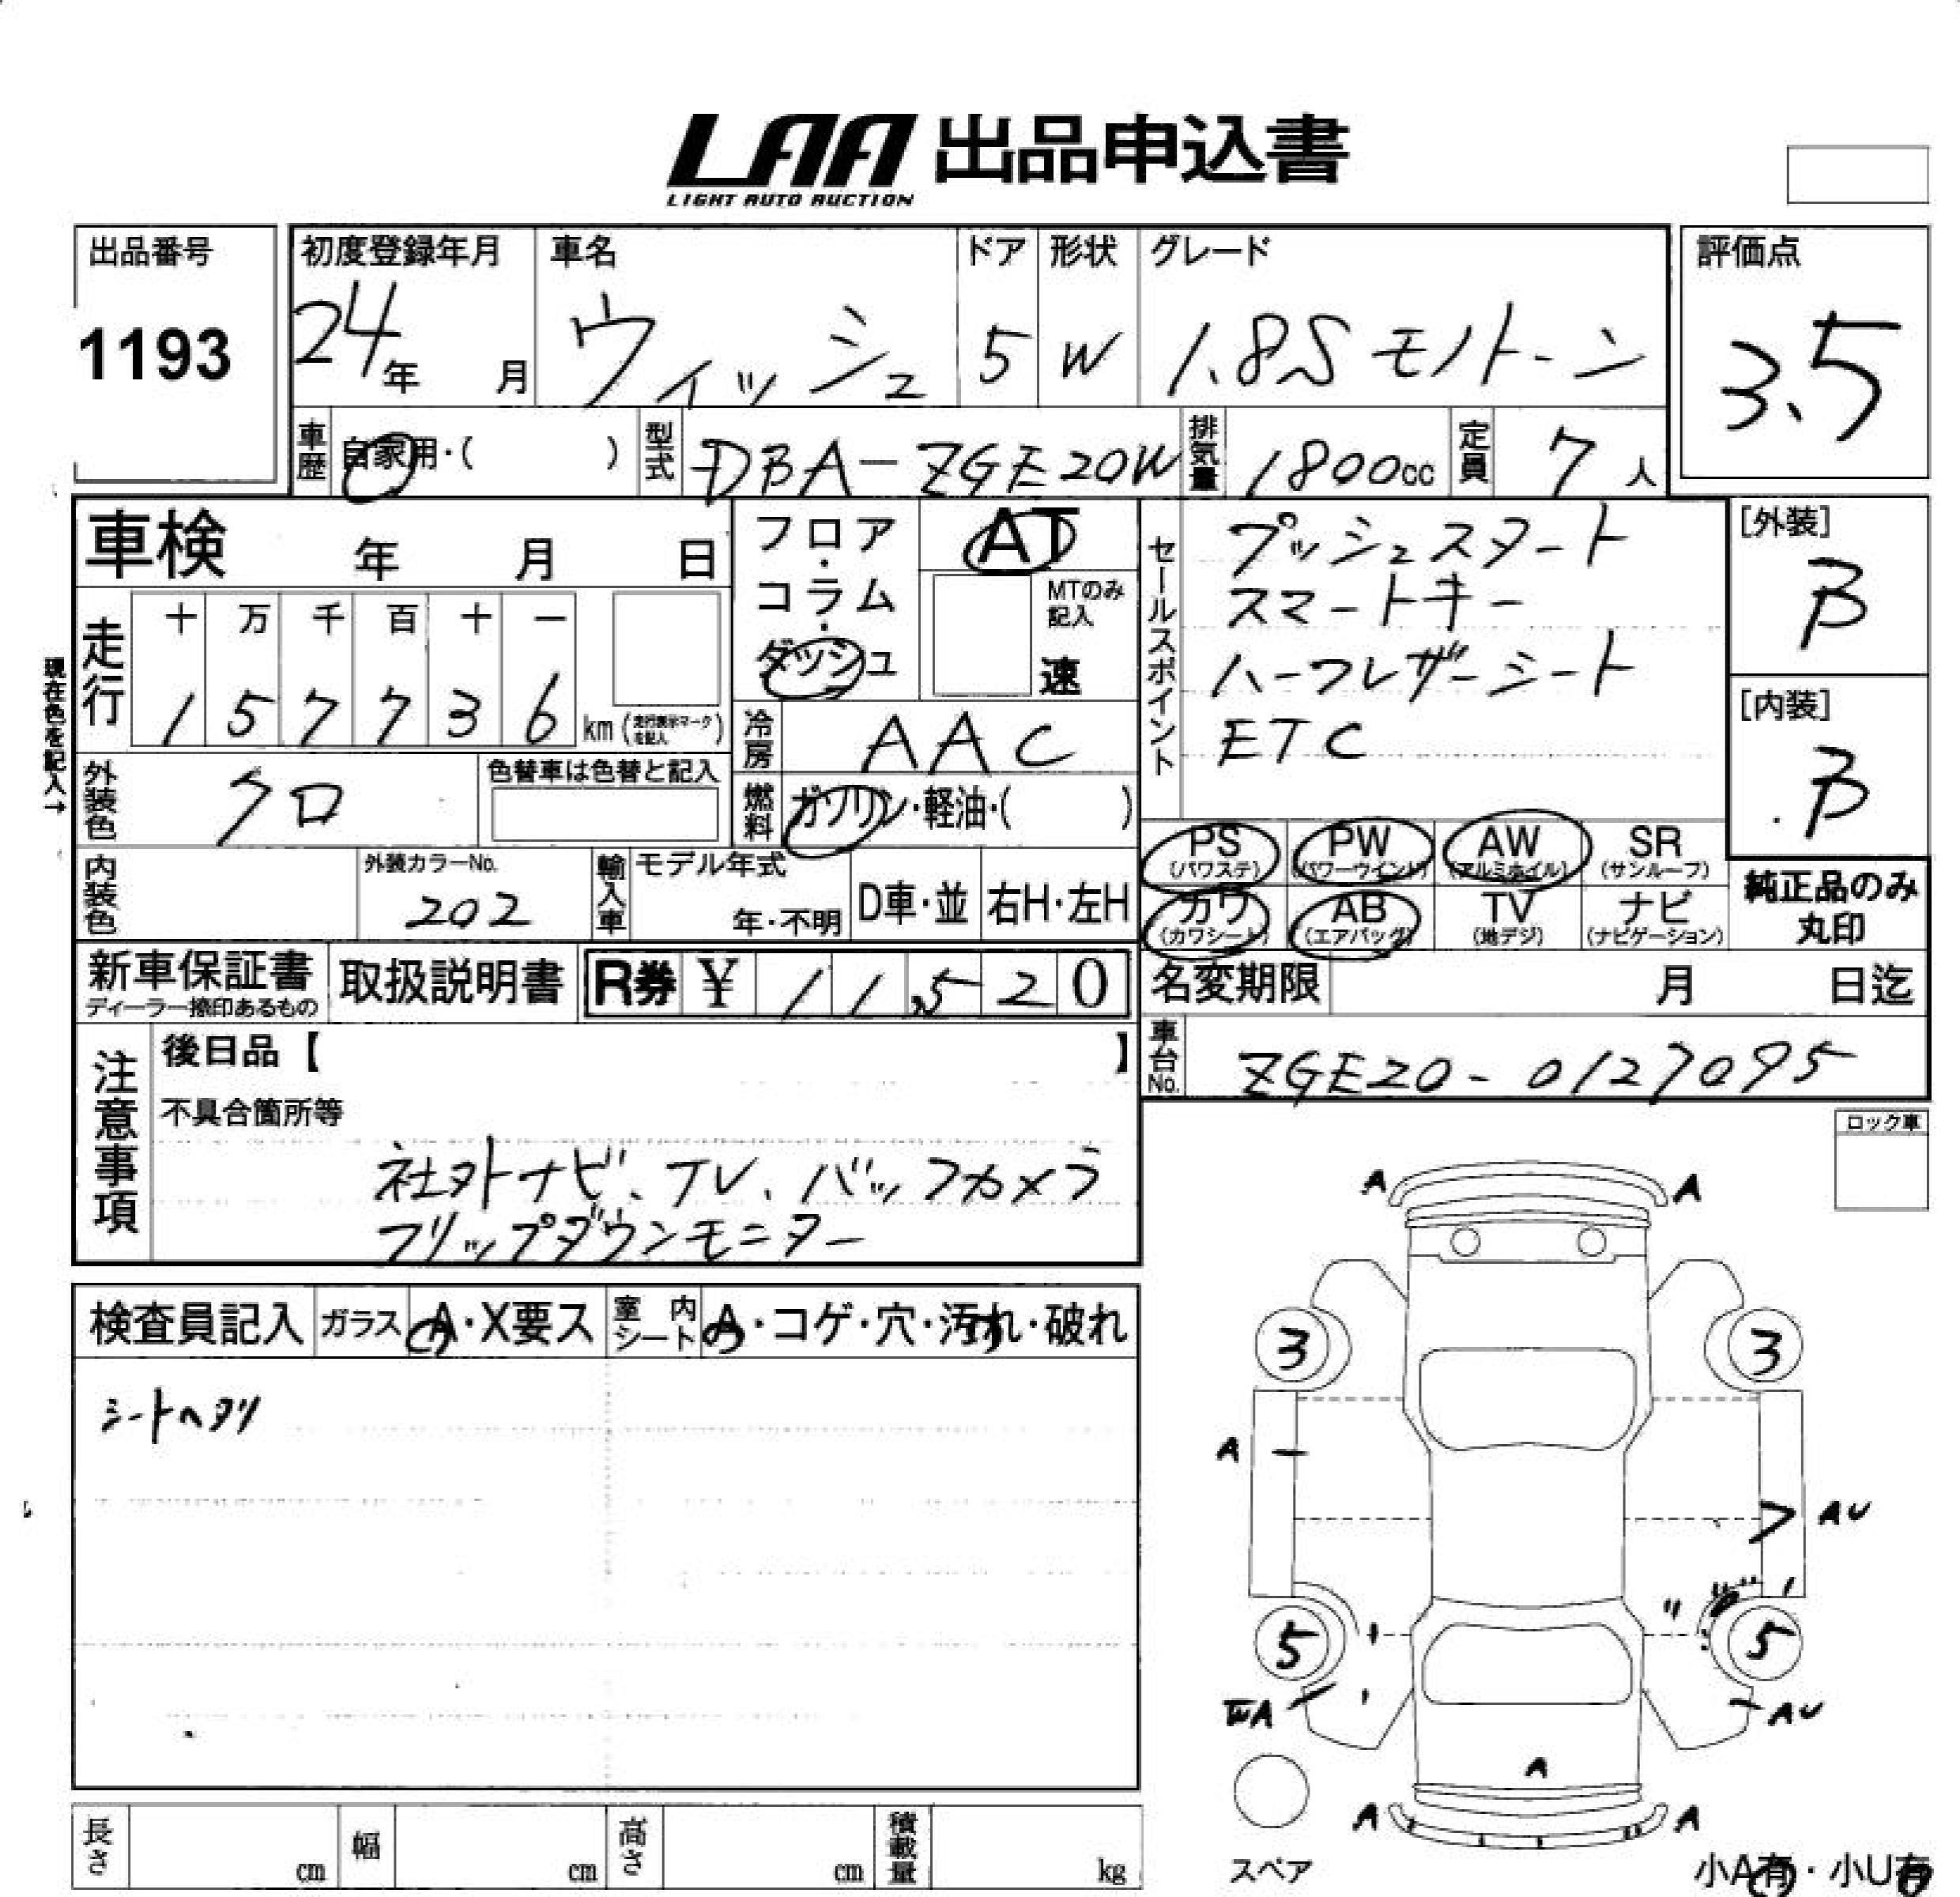 LAA 出品申込書
LIGHT AUTO AUCTION
出品番号
1193
初度登録年月
24年 月
車名
ウィッシュ
ドア
5
形状
W
グレード
1.8S モノトーン
評価点
3.5
車歴
自家用・( )
型式
DBA-ZGE20W
排気量
1800cc
定員
7人
車検 年 月 日
フロア・コラム・ダッシュ
AT
MTのみ記入
速
セールスポイント
プッシュスタート
スマートキー
ハーフレザーシート
ETC
[外装]
B
[内装]
B
現在色を記入→
走行
十 万 千 百 十 一
1 5 7 7 3 6 km (走行表示マークを記入)
冷房
AAC
外装色
クロ
色替車は色替と記入
燃料
ガソリン・軽油・( )
PS (パワステ)
PW (パワーウインド)
AW (アルミホイル)
SR (サンルーフ)
カワ (カワシート)
AB (エアバッグ)
TV (地デジ)
ナビ (ナビゲーション)
純正品のみ丸印
内装色
外装カラーNo.
202
輸入車
モデル年式
年・不明
D車・並
右H・左H
新車保証書
ディーラー捺印あるもの
取扱説明書
R券 ¥ 11520
名変期限 月 日迄
車台No.
ZGE20-0127095
注意事項
後日品【 】
不具合箇所等
社外ナビ、TV、バックカメラ
フリップダウンモニター
ロック車
検査員記入
ガラス A・X要ス
室内シート A・コゲ・穴・汚れ・破れ
シートヘタリ
A A
3 3
A
AU
5 5
AU
A
A A
スペア
小A有・小U有
長さ cm
幅 cm
高さ cm
積載量 kg